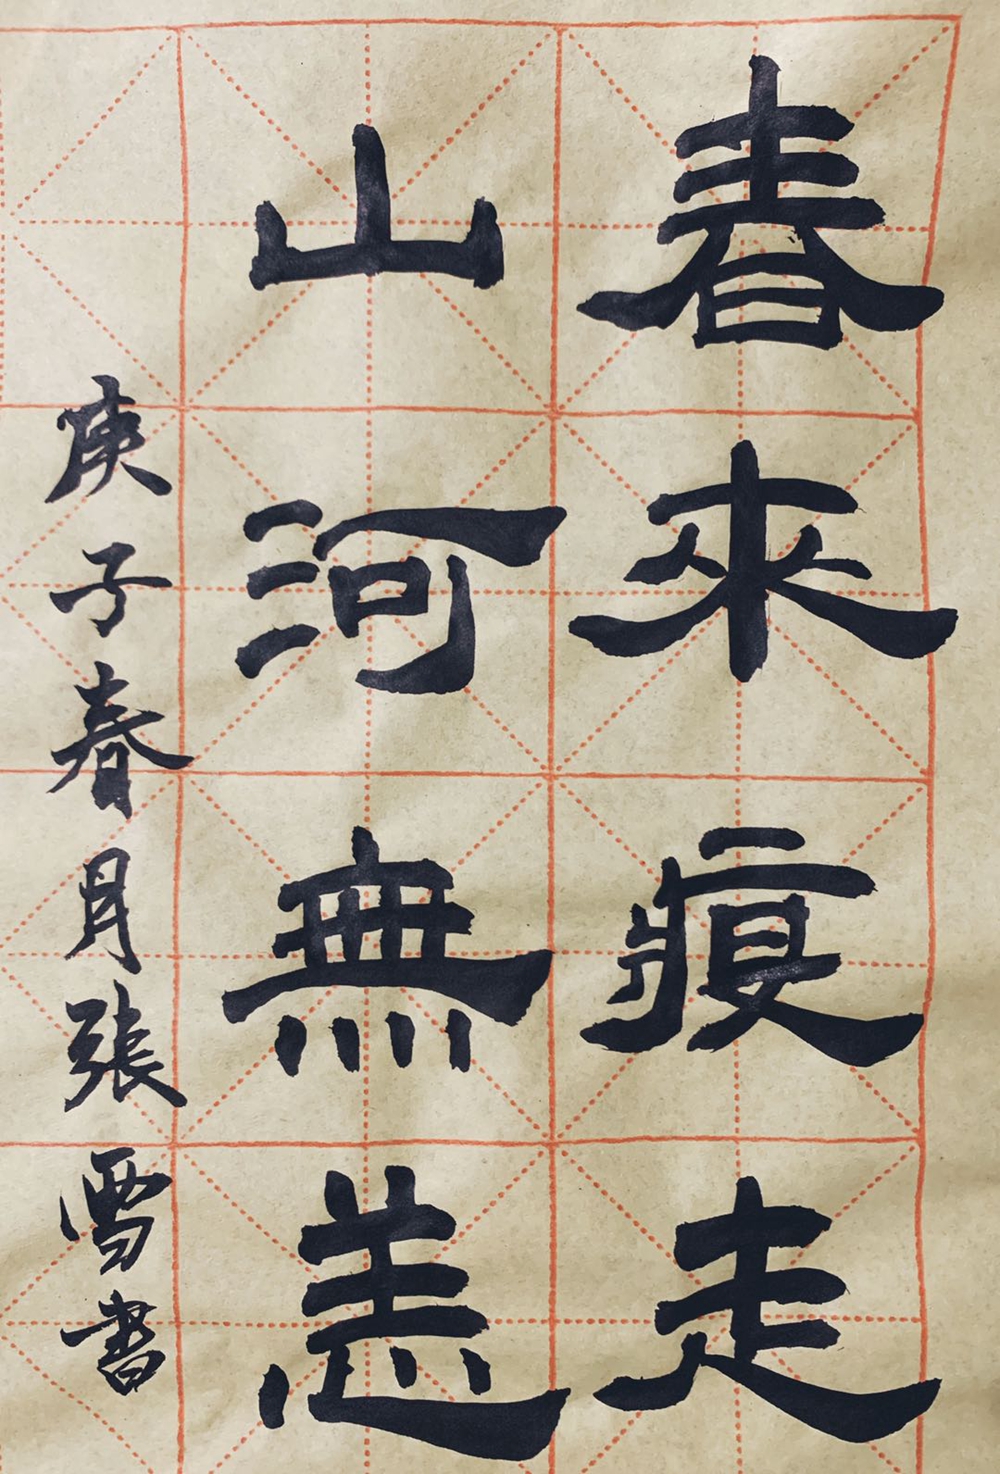 春來疫走
山河無恙
庚子春月張雪書